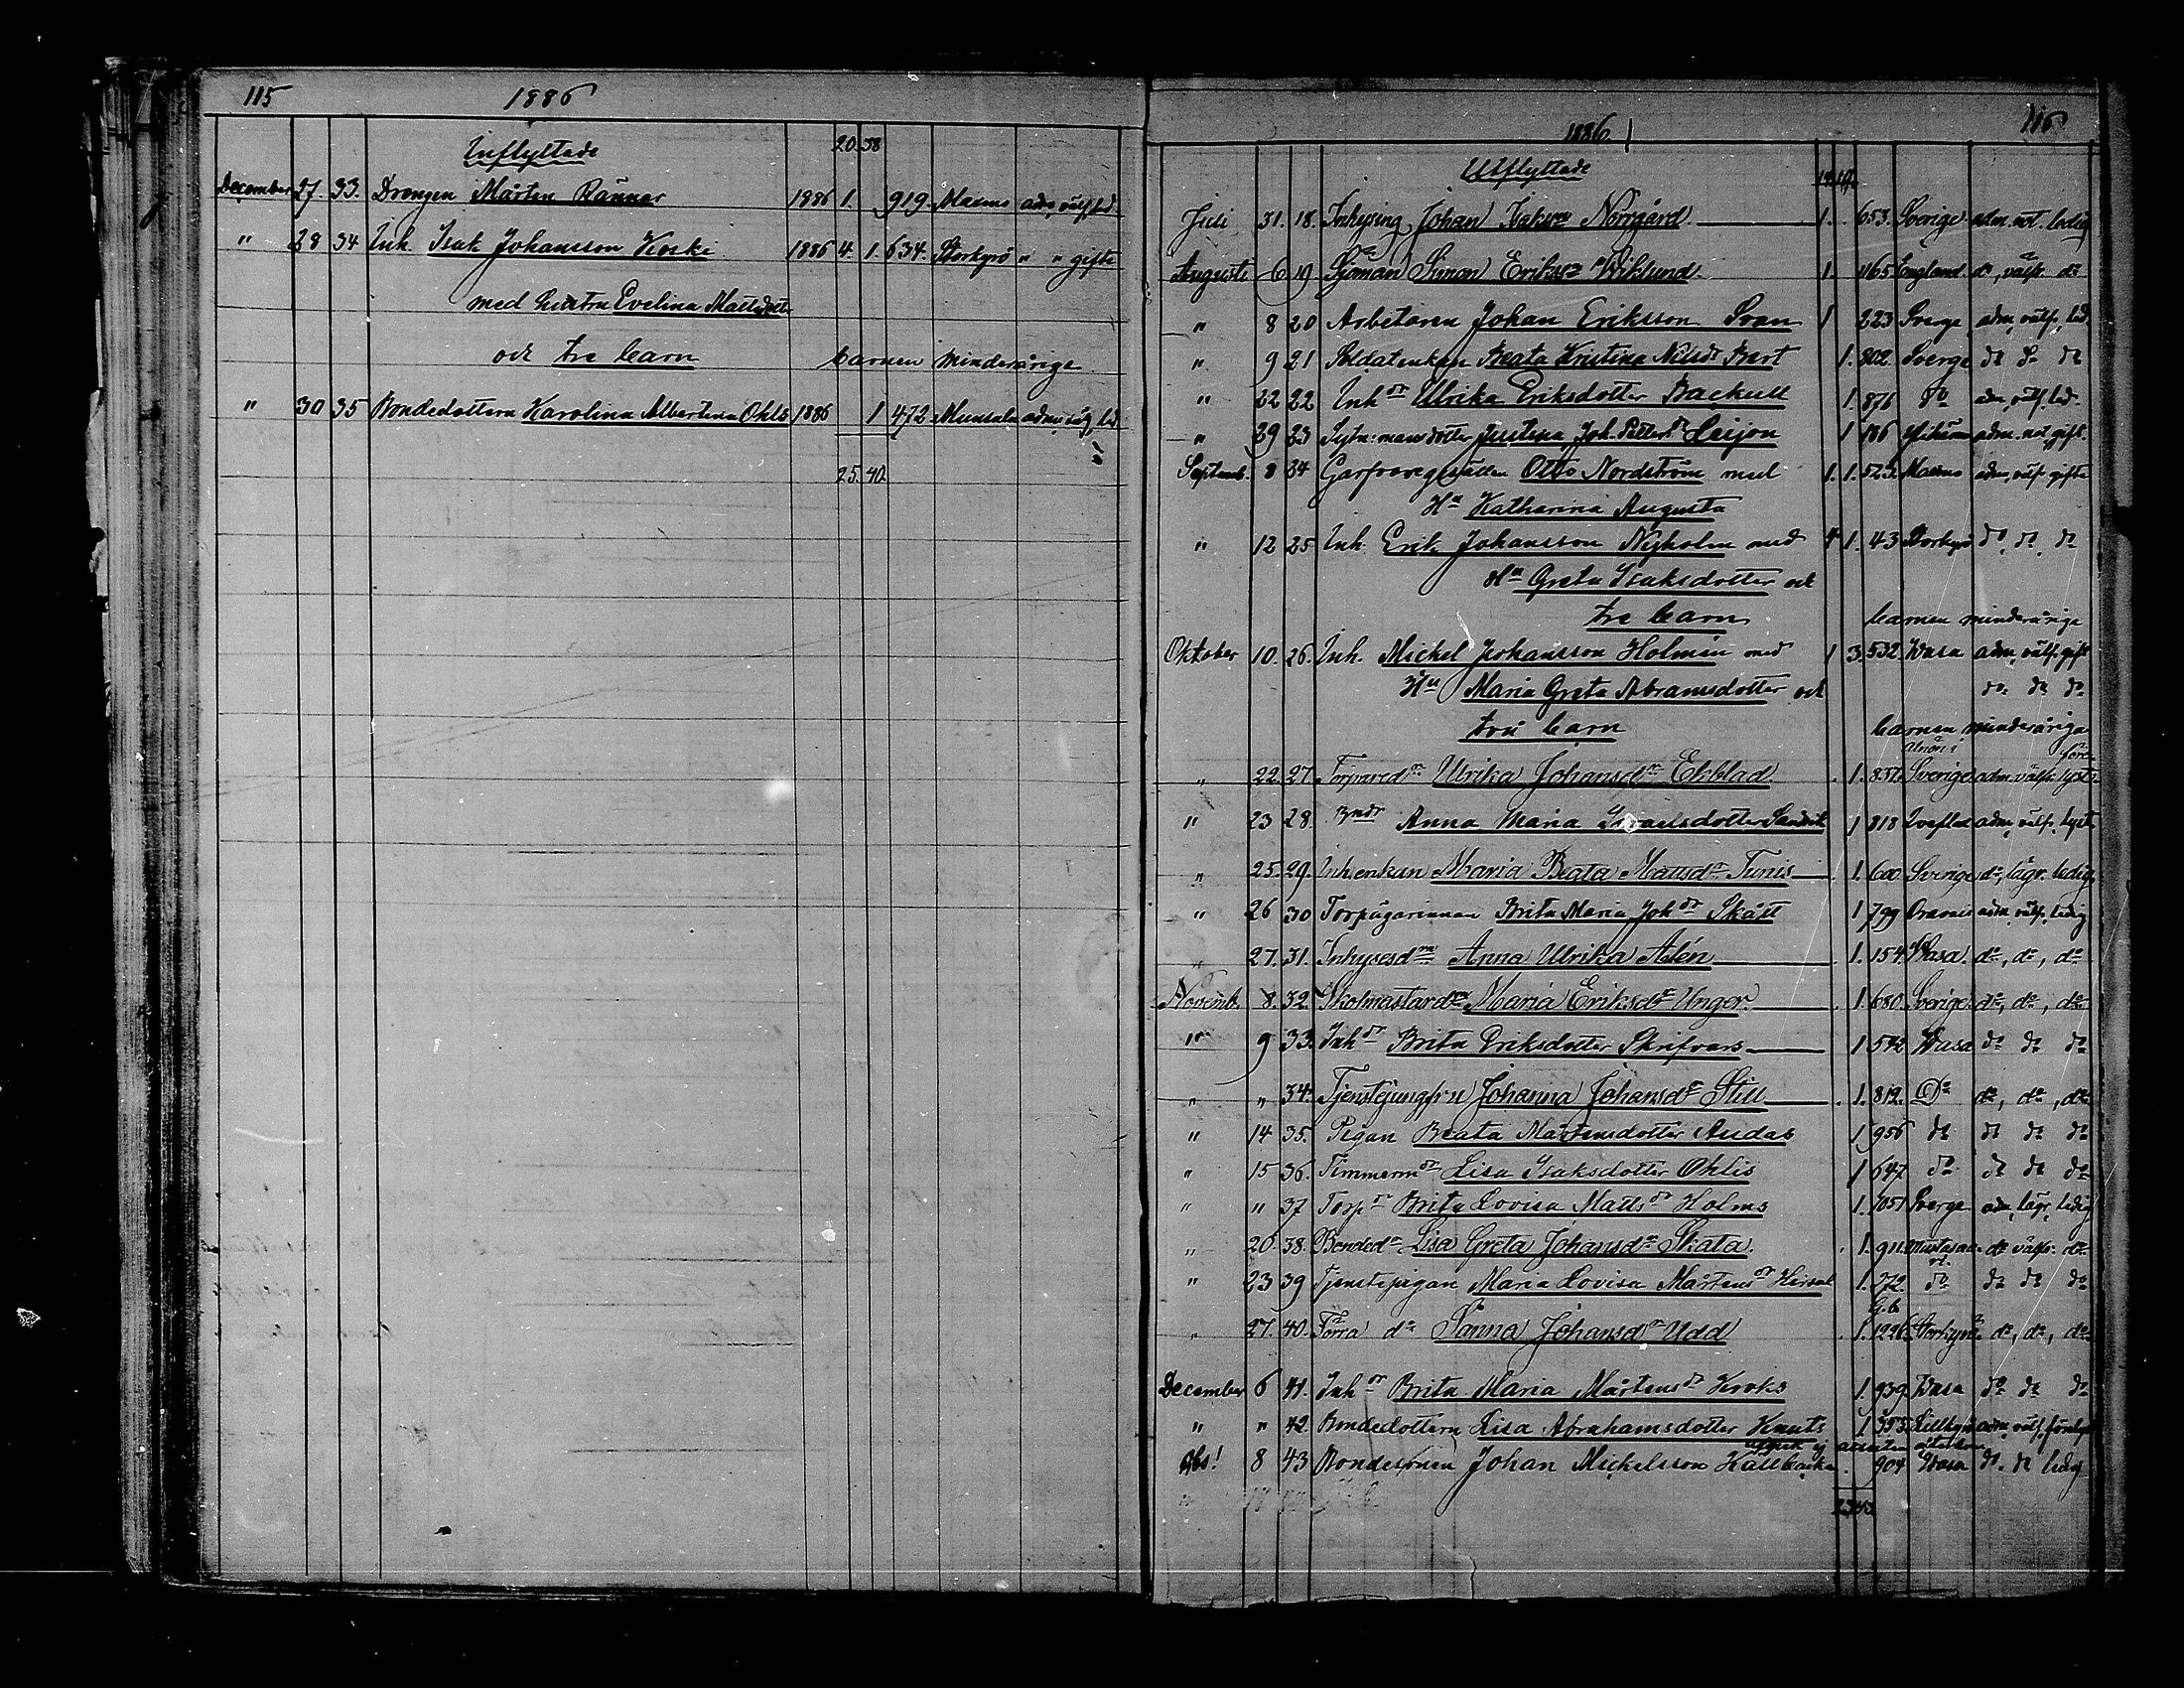 115 1886
Inflyttade 20. 38
December 27. 33. Drengen Mårten Rännar 1886 1. 919. Maxmo adm, välf, led
" 28 34 Inh. Isak Johansson Koski 1886 4. 1. 634. Storkyro " " gifte
med hustru Evelina Mattsdotter
och tre barn barnen minderårige
" 30 35 Bondedottern Karolina Albertina Ohls 1886 1 472 Munsala
25. 40.
1886 116
Utflyttade
Juli 31. 18. Inhysing Johan Isaksson Norrgård 1. 653. Sverige adm. not. ledig
Augusti 6 19 Sjöman Simon Eriksson Wiklund 1. 1165 England do, välf. do
" 8 20 Arbetaren Johan Eriksson Svan 1 223 Sverge adm, välf, led.
" 9 21 Soldatenkan Beata Kristina Nilsdr 1. 802. Sverge do do do
" 22 22 Inh dr Ulrika Eriksdotter Backull 1. 876 do adm, välf, led.
" 29 23 Justina Joh. Petters dr Leijon 1 186 adm. not, gift.
Septemb. 8 24 Garfvaregesällen Otto Nordström med 1. 1. 523. Maxmo adm, välf. gifte
Hu Katharina Augusta
" 12 25 Inh. Erik Johansson Nyholm med 4 1. 43 Storkyro do, do, do
Hu Greta Isaksdotter och
tre barn barnen minderårige
Oktober 10. 26. Inh. Mickel Johansson Holmén med 1 3. 532 Wasa adm, välf, gift
Hu Maria Greta Abramsdotter och do do do
två barn barnen minderåriga
" 22. 27. Ulrika Johansdr Ekblad 1. 837. Sverige adm. välfr. lyst
" 23 28. Anna Maria Israelsdotter Sandvik 1 818 Qveflax adm, välf, lyst
" 25. 29. Inh.enkan Maria Beata Mattsdr Tunis 1. 600 Sverige do, lägr. ledig
" 26 30 Torpägarinnan Brita Maria Joh dr Skätt 1 799 Oravais adm, välf, ledig
" 27. 31. Inhysesdn Anna Ulrika Alén 1. 154. Wasa. do, do, do
Novemb. 8. 32. Skolmästardn Maria Eriksdr Unger 1. 680. Sverige do, do, do
" 9 33. Inh dr Brita Eriksdotter Skrifvars 1 572 Wasa do do do
" " 34. Tjenstejungfru Johanna Johansdr Still 1. 812. Do do, do, do
" 14 35. Pigan Beata Mårtensdotter Andas 1 956 do do do do
" 15 36. Timmerm dr Lisa Isaksdotter Ohlis 1 647 do do do do
" " 37 Torp dr Brita Lovisa Matts dr Holms 1. 1051 Sverge adm, lägr, ledig
" 20. 38. Bonded Lisa Greta Johansdr Skata 1. 911. Mustasaari do välfr. do
" 23 39 Tjenstepigan Maria Lovisa Mårtens dr 1. 272. do do do do
" 27. 40. Förra do Sanna Johansdr Udd 1. 1226. Storkyro do, do, do
December 6 41. Inh dr Brita Maria Mårtens dr Kroks 1. 939. Wasa do do do
" " 42. Bondedottern Lisa Abrahamsdotter Knuts 1 353. Lillkyro adm, välf,
Obs! 8 43 Bondesonen Johan Mickelsson Källbacka 904 Wasa do do ledig